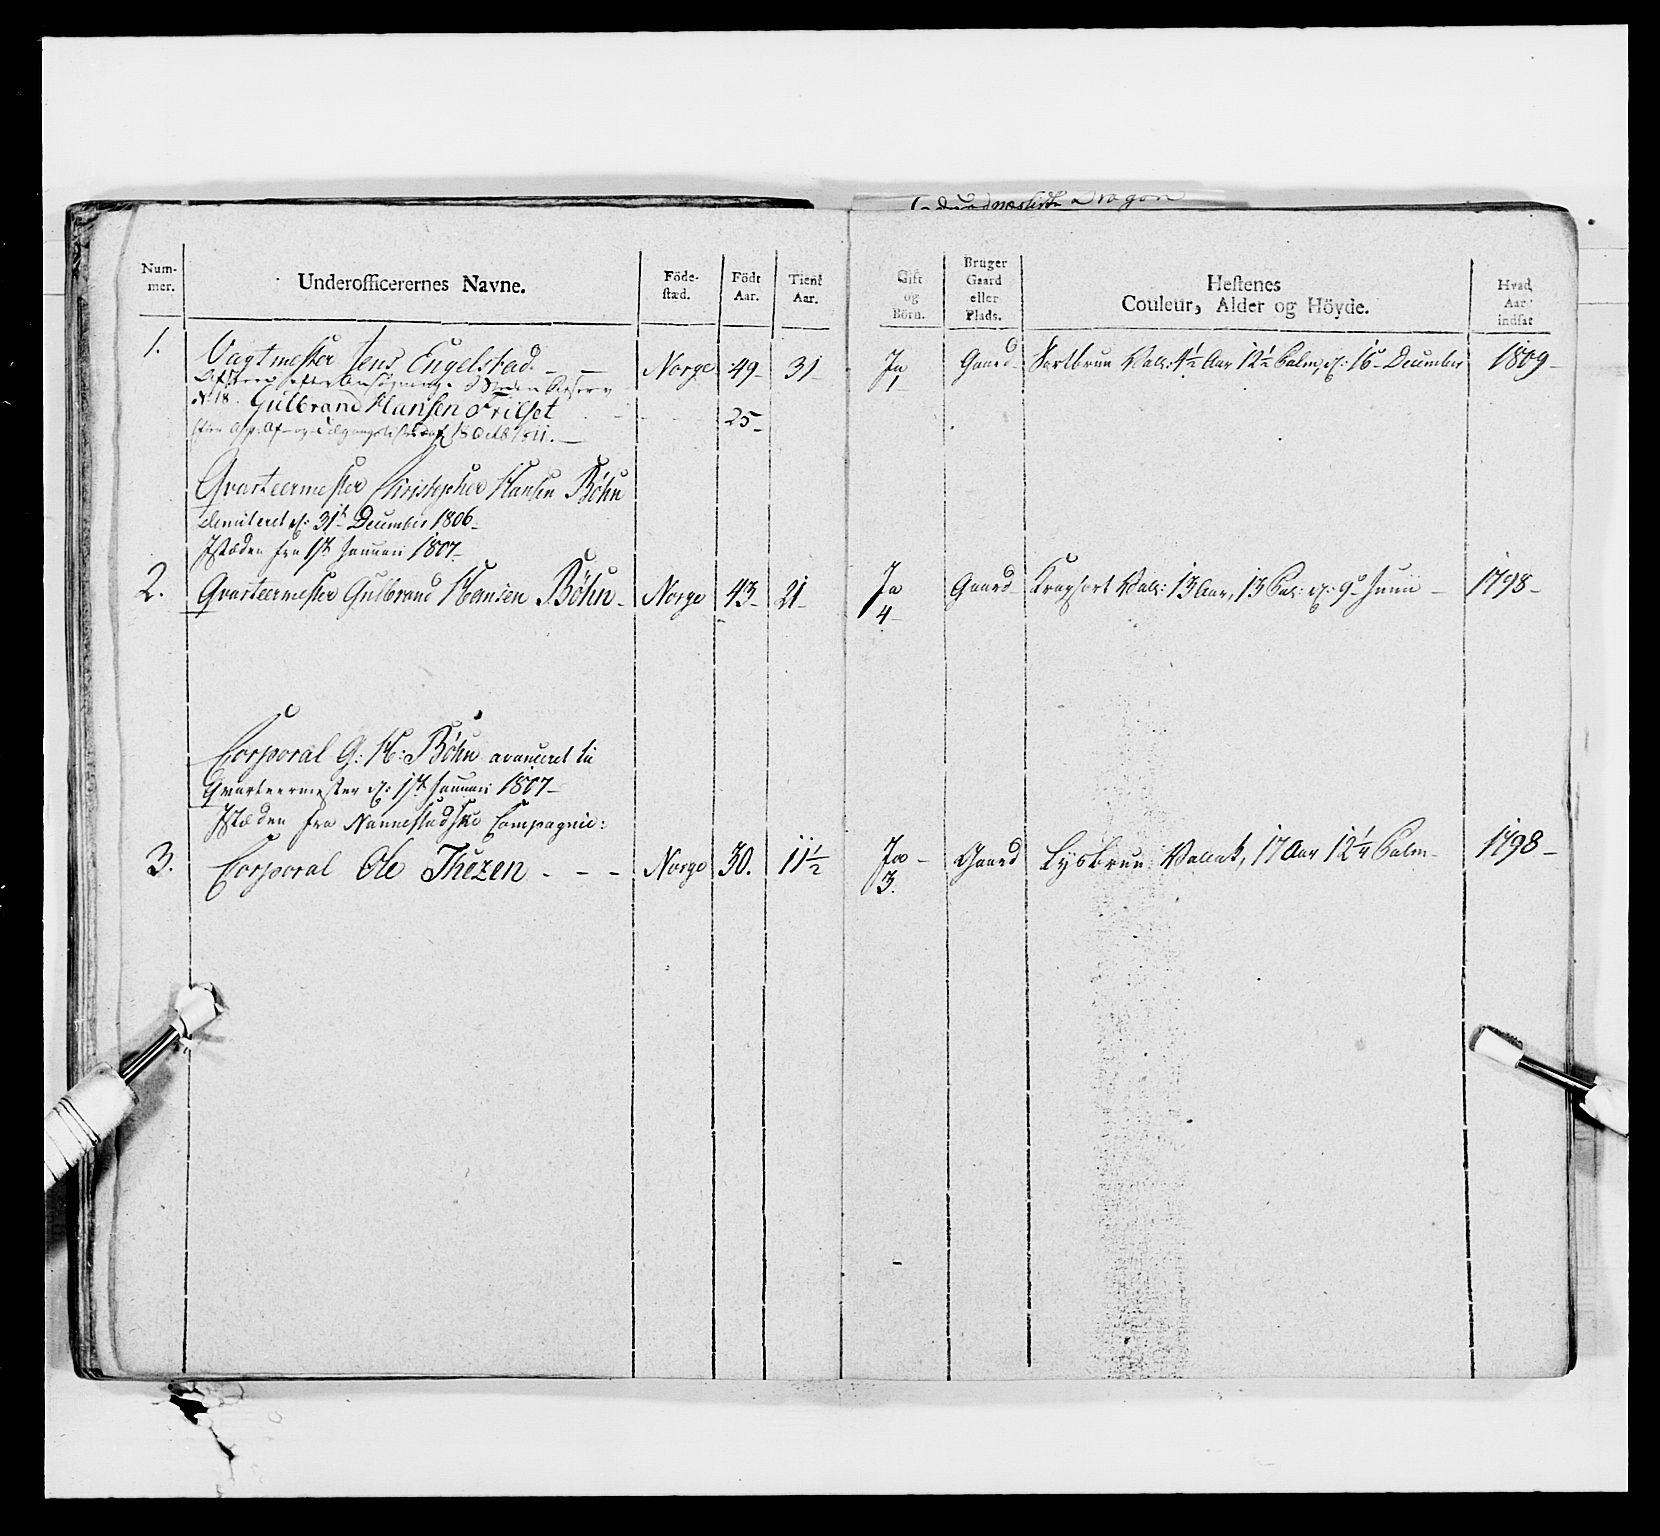 Dragon
Num-
mer.
Underofficerernes Navne.
Föde-
stæd.
Födt
Aar.
Tient
Aar.
Gift
og
Börn.
Bruger
Gaard
eller
Plads.
Hestenes
Couleur, Alder og Höyde.
Hvad
Aar
indsat
1. Vagtmester Jens Engelstad. Norge 49 31 Ja Gaard Sortbrun Val: 4½ Aar 12½ Palm, d: 16 December 1809
1
No 18. Gulbrand Hansen Frilset 25
1811.
Qvarteermester Christopher Hansen Böhn
demiteret d: 31te December 1806
Istæden fra 1ste Januari 1807
2. Qvarteermester Gulbrand Hansen Böhn Norge 43 21 Ja Gaard Val: 13 Aar, 13 Pal: d: 9de Junii 1798
4
Corporal G: H: Böhn avanceret til
Qvarteermester d: 1ste Januari 1807
Istæden fra Nannestadske Compagnie:
3. Corporal Ole Thezen - - - Norge 30. 11½ Ja Gaard Lysbrun Vallak, 17 Aar 12¼ Palm 1798
3.